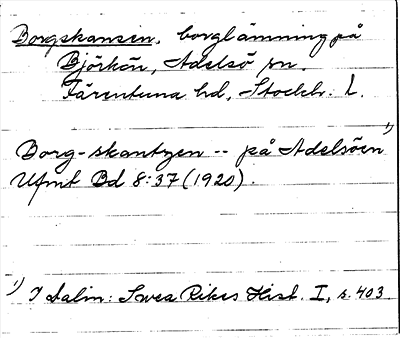 Borgskansen, borglämning på
Björkön, Adelsö sn.
Färentuna hd, Stockh. L.
Borg-skantzen -- på Adelsöen 1)
Ufmt Bd 8:37 (1920).
1) I Dalin: Svea Rikes Hist. I, s. 403